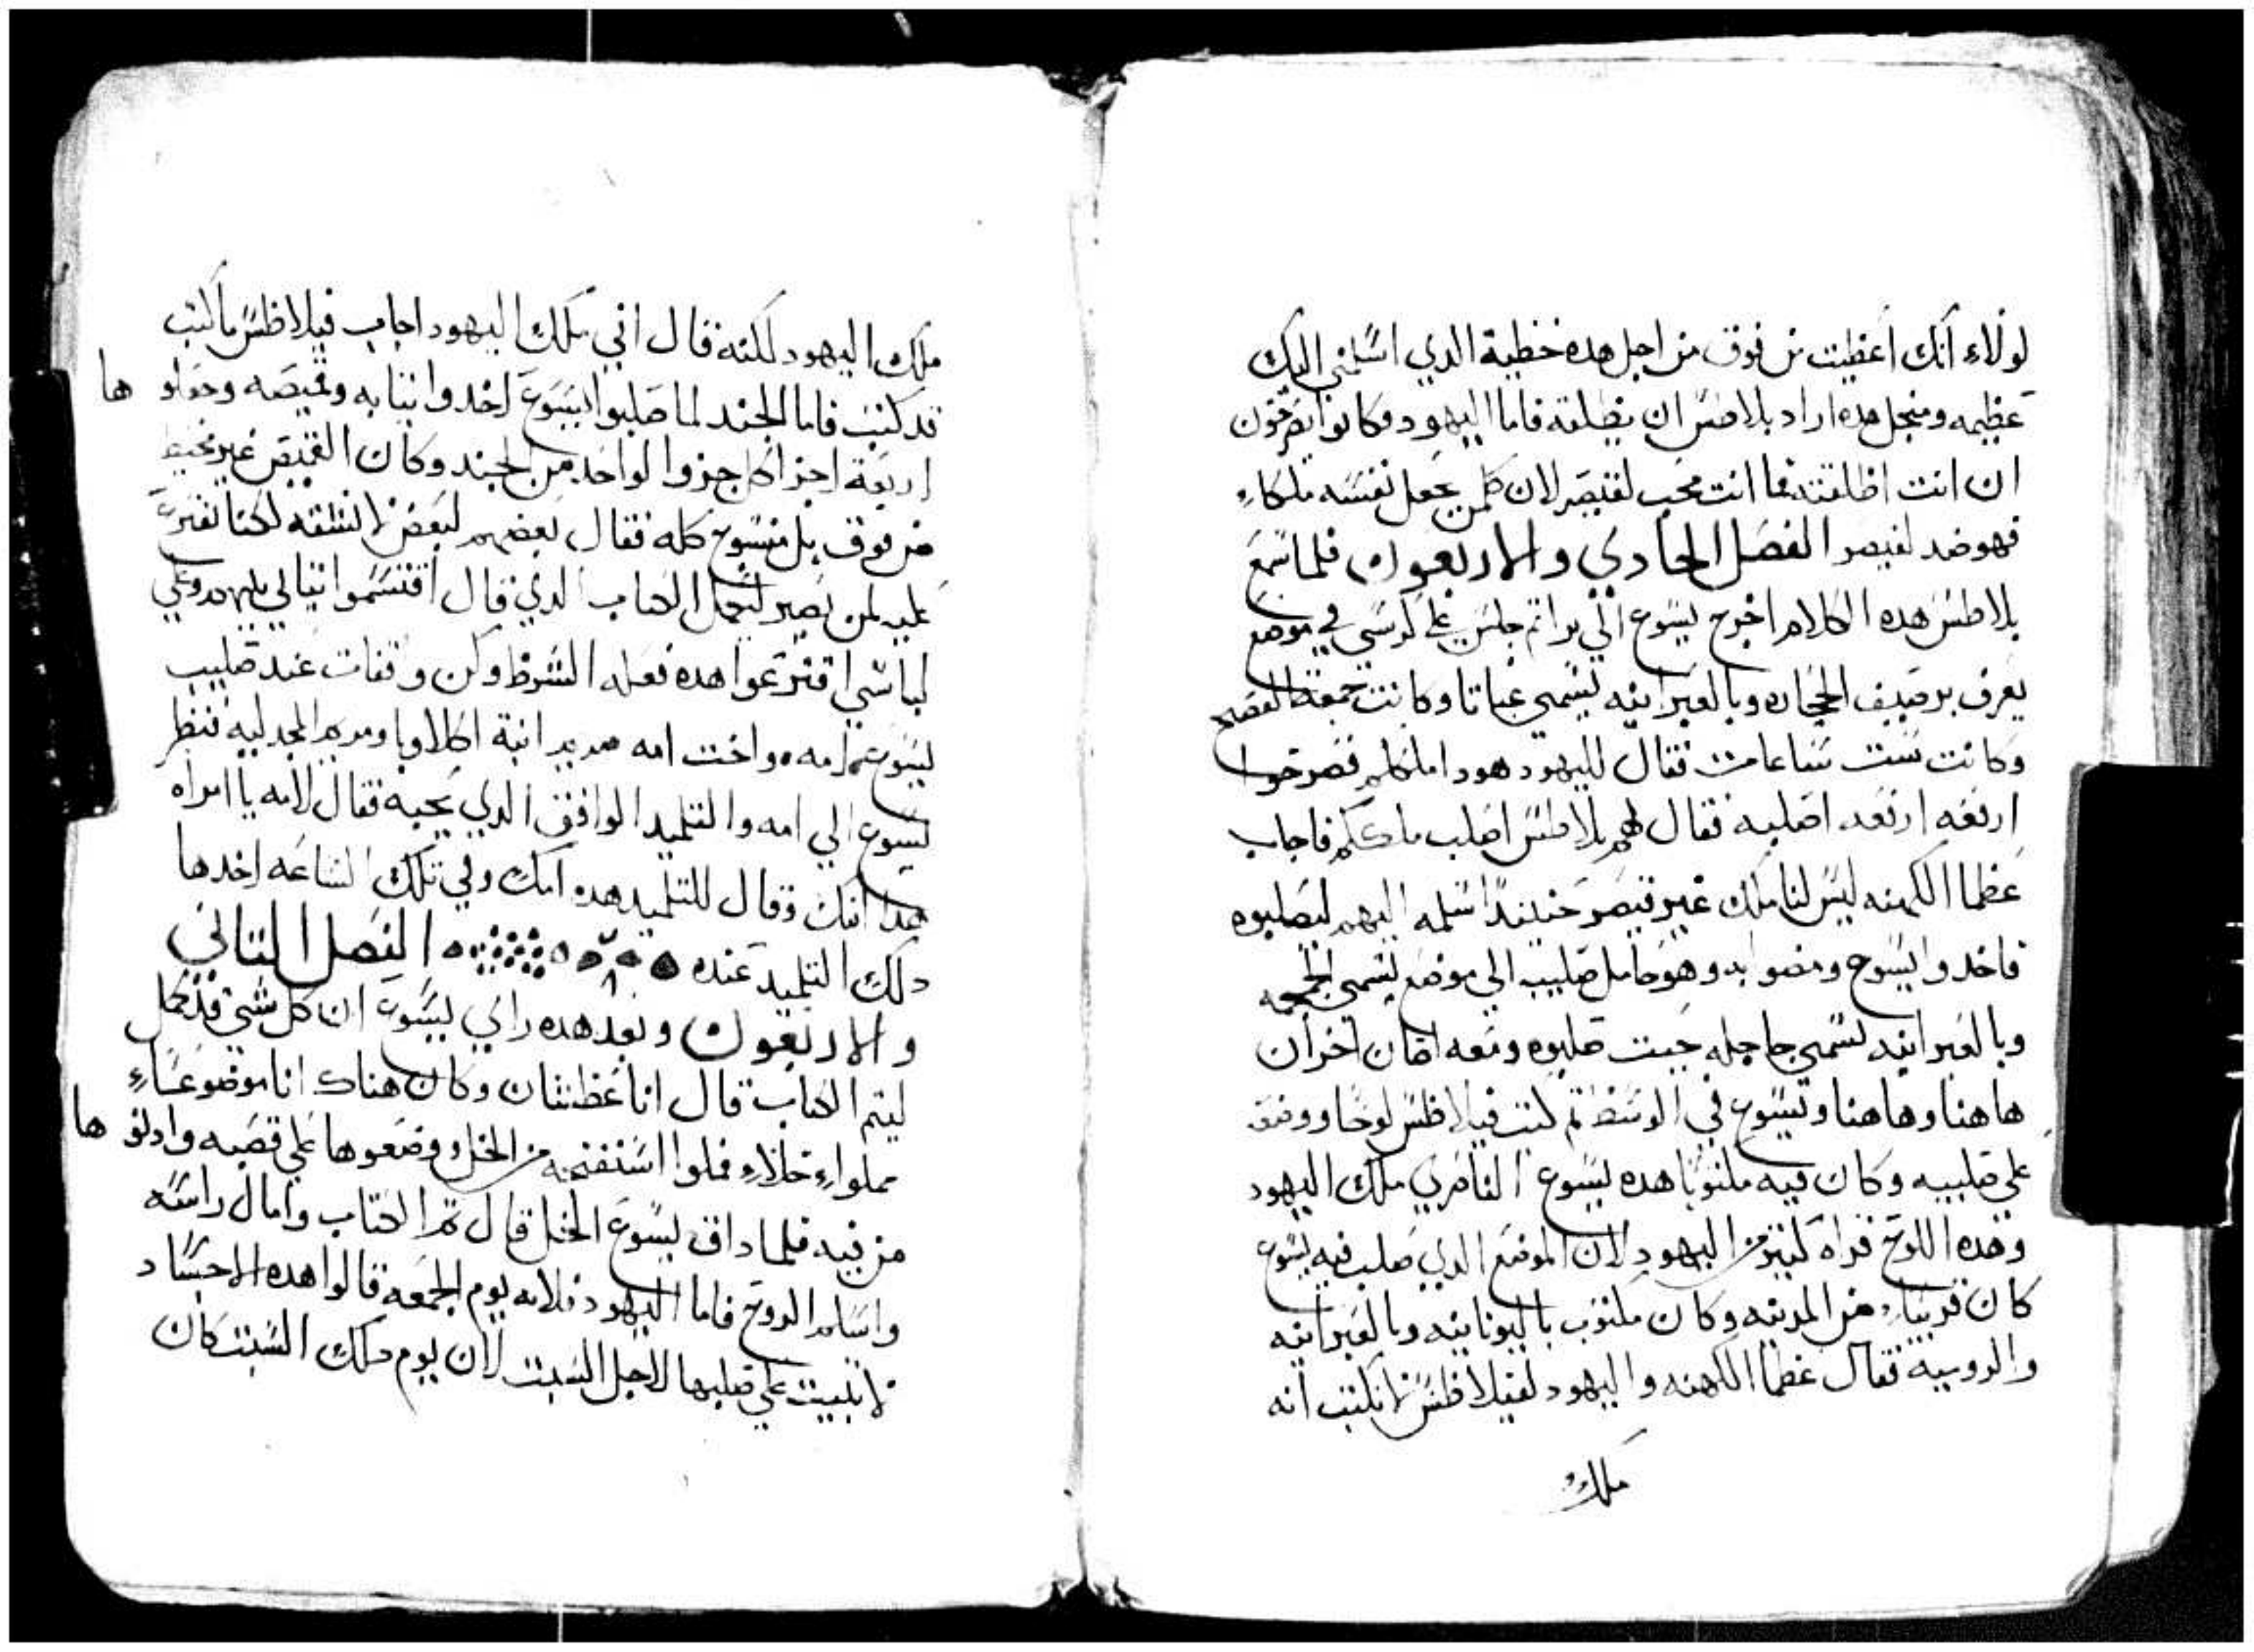 لولاء انك اعطيت من فوق من اجل هده خطية الدي اسلمني اليك
عظيمه ومنجل هده اراد بلاطس ان يطلقه فاما اليهود فكانوا يصرخون
ان انت اطلقته فما انت محب لقيصر لان كلمن يجعل نفسه ملكاء
فهو ضد لقيصر الفصل الحادي والاربعون فلما سمع
بلاطس هده الكلام اخرج يسوع الي برا تم جلس علي كرسي في موضع
يعرف برصيف الحجاره وبالعبرانيه يسمي غباتا وكانت جمعة الفصح
وكانت ست ساعات فقال لليهود هودا ملككم فصرخوا
ارفعه ارفعه اصلبه فقال لهم بلاطس اصلب ملككم فاجاب
عظما الكهنه ليس لنا ملك غير قيصر حينيدا اسلمه اليهم ليصلبوه
فاخدوا يسوع ومضوا به وهو حامل صليبه الي موضع يسمي الجمجمه
وبالعبرانيه تسمي جاجله حيت صلبوه ومعه اتنان اخران
هاهنا وهاهنا ويسوع في الوسط تم كتب فيلاطس لوحا ووضعه
علي صليبه وكان فيه مكتوبا هده يسوع الناصري ملك اليهود
وهده اللوح قراه كتير من اليهود لان الموضع الدي صلب فيه يسوع
كان قريباء من المدينه وكان مكتوب باليونانيه وبالعبرانيه
والروميه فقال عظما الكهنه واليهود لفيلاطس لا تكتب انه
ملك
ملك اليهود لكنه قال اني ملك اليهود اجاب فيلاطس ما كتب
قد كتبت فاما الجند لما صلبوا يسوع اخدوا تيابه وقميصه وجعلوها
اربعة اجزا كل جزوا لواحد من الجند وكان القميص غير مخيط
من فوق بل منسوج كله فقال بعضهم لبعض لا نشقه لكنا نقترع
عليه لمن تصير ليكمل الكتاب الدي قال اقتسموا تيابي بينهم وعلي
لباسي اقترعوا هده فعله الشرط وكن وقفات عند صليب
يسوع امه واخت امه مريم ابنة اكلاوبا ومريم المجدليه فنظر
يسوع الي امه والتلميد الواقف الدي يحبه فقال لامه يا امراه
هدا ابنك وقال للتلميد هده امك وفي تلك الساعه اخدها
دلك التلميد عنده الفصل التاني
والاربعون وبعد هده راي يسوع ان كل شي قد كمل
ليتم الكتاب قال انا عطشان وكان هناك انا موضوعاء
مملواء خلاء فملوا اسنفنجه من الخل ووضعوها علي قصبه وادنوها
من فيه فلما داق يسوع الخل قال تم الكتاب وامال راسه
واسلم الروح فاما اليهود فلانه يوم الجمعه قالوا هده الاجساد
لا تبيت علي صلبها لاجل السبت لان يوم دلك السبت كان